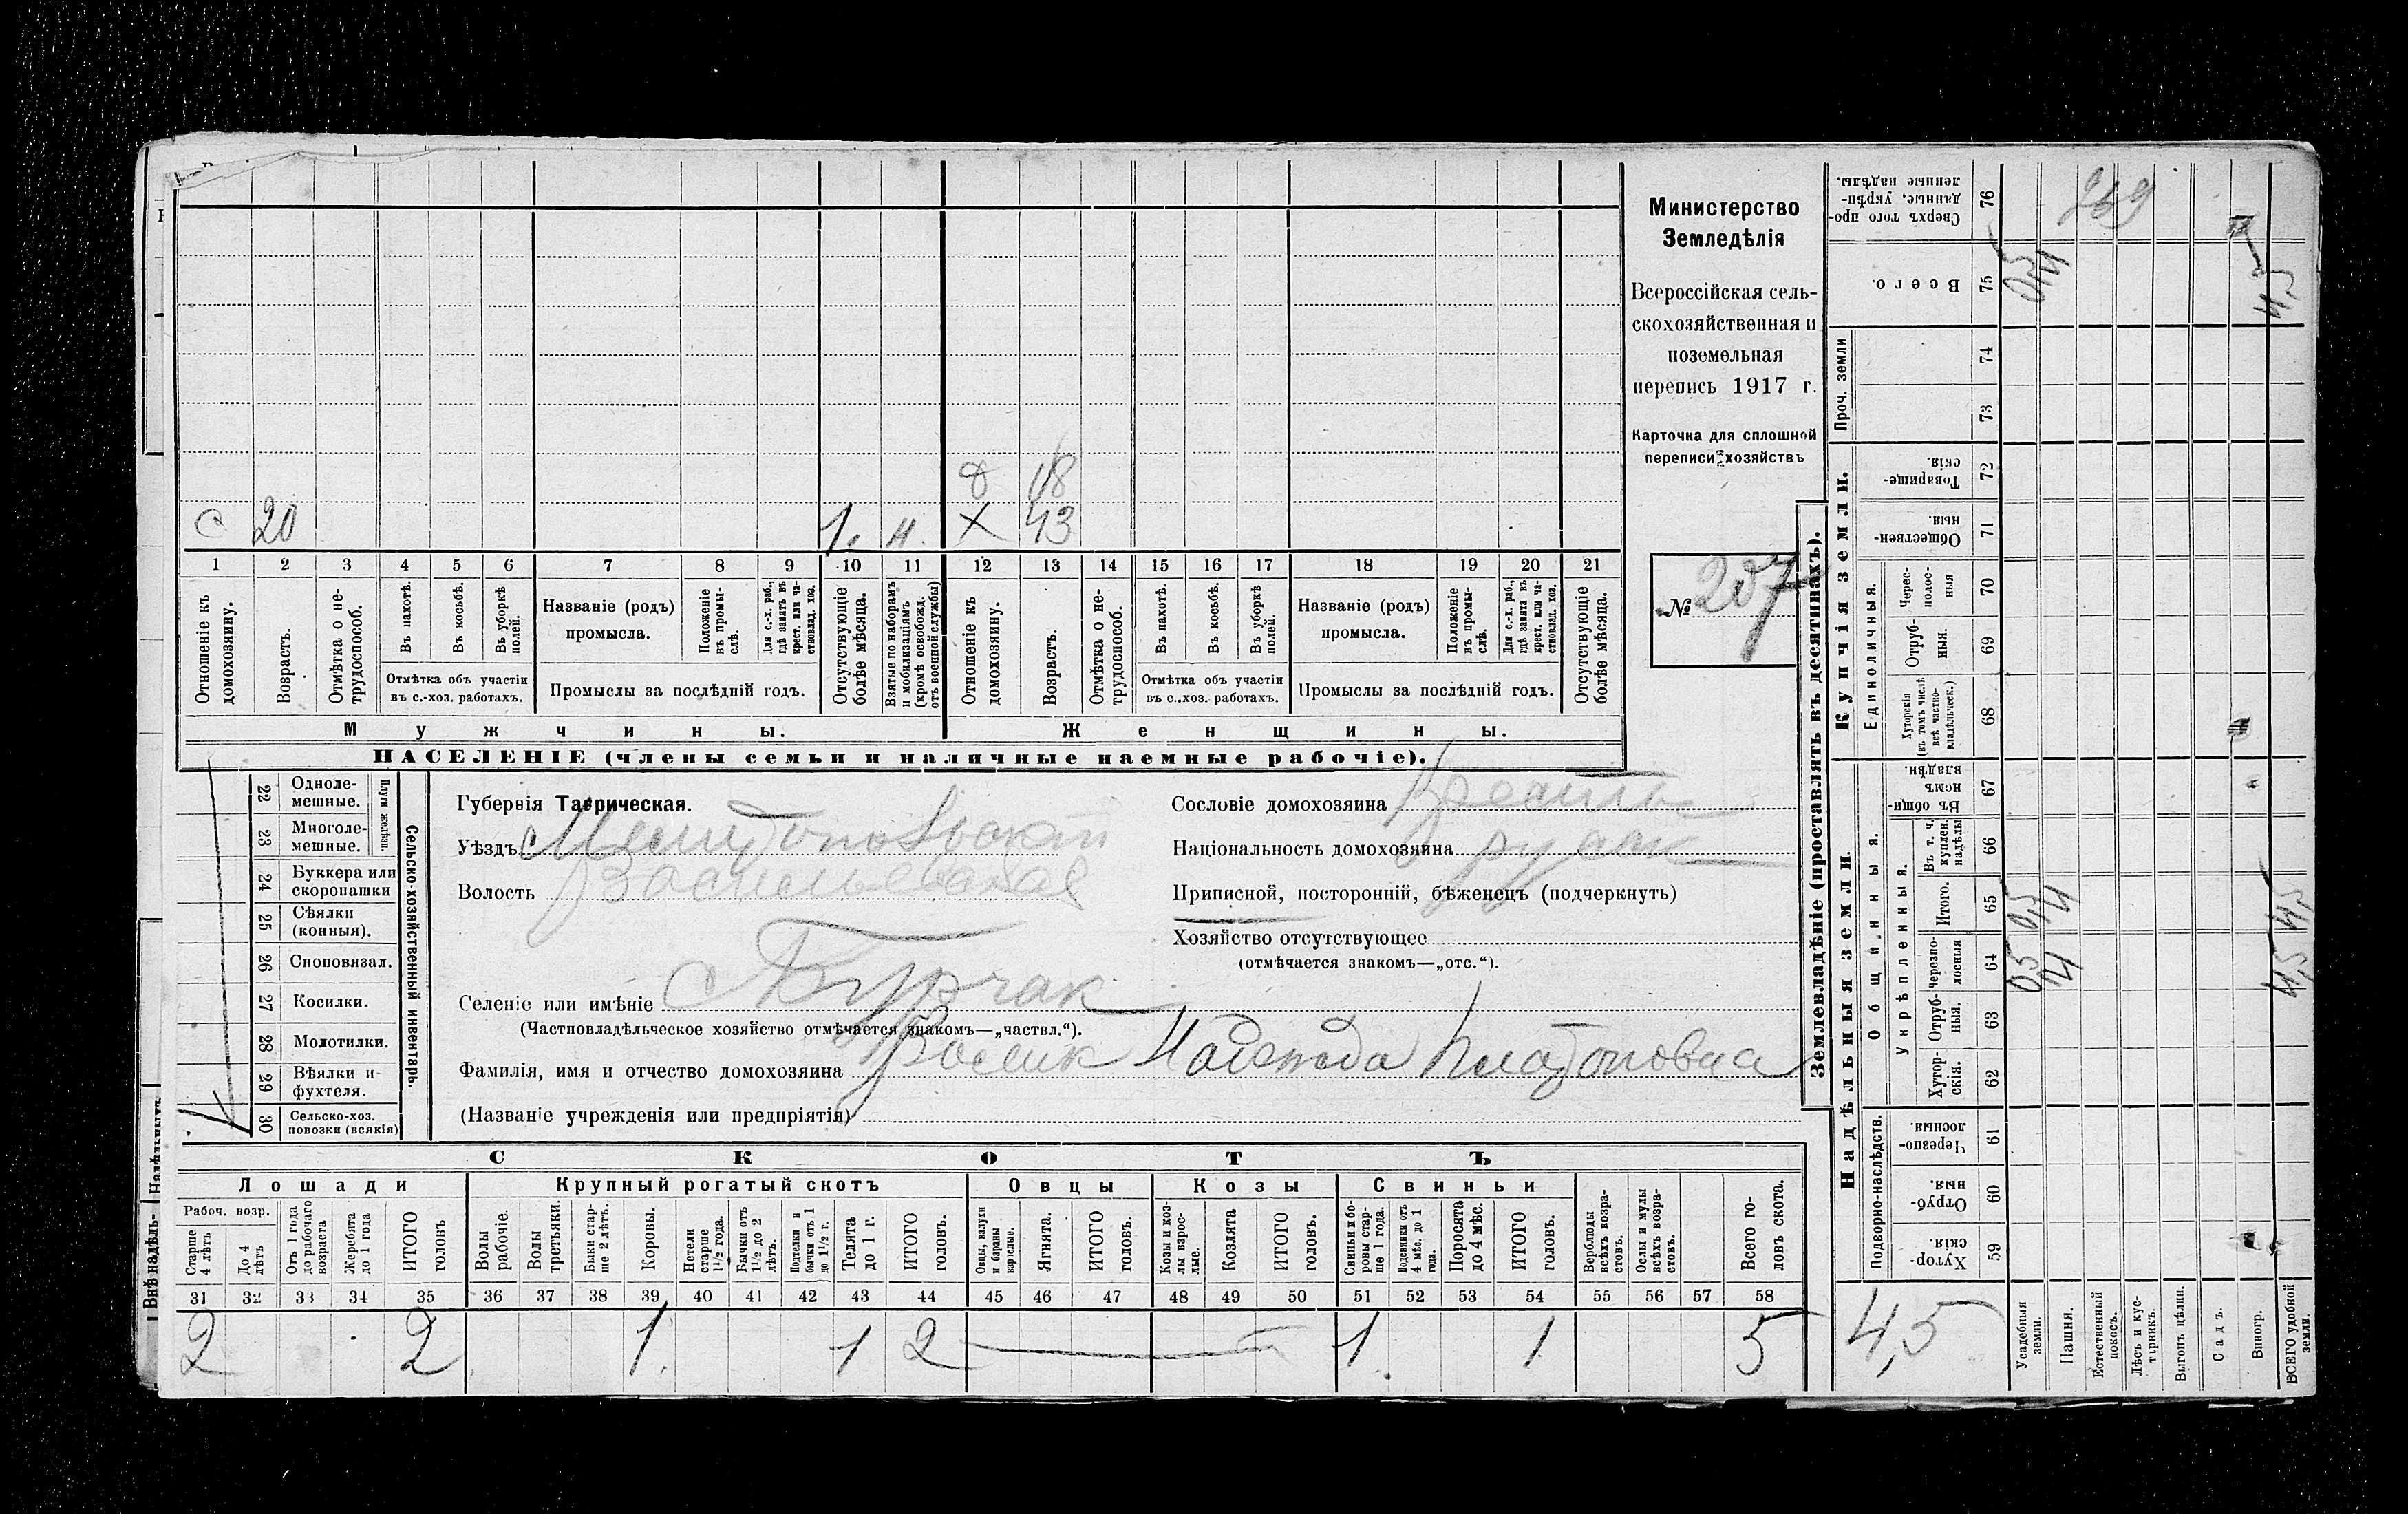 с 20 1. н. д 18
х 43
1 2 3 4 5 6 7 8 9 10 11 12 13 14 15 16 17 18 19 20 21
Отношеніе къ домохозяину.
Возрастъ.
Отмѣтка о не-трудоспособ.
Въ пахотѣ.
Въ косьбѣ.
Въ уборкѣ полей.
Отмѣтка объ участіи
въ с.-хоз. работахъ.
Названіе (родъ)
промысла.
Положеніе въ промы-слѣ.
Для с.-х. раб., гдѣ занятъ въ крест. или ча-стновлад. хоз.
Промыслы за послѣдній годъ.
Отсутствующіе болѣе мѣсяца.
Взятые по наборамъ и мобилизаціямъ (кромѣ освобожд. отъ военной службы)
Отношеніе къ домохозяину.
Возрастъ.
Отмѣтка о не-трудоспособ.
Въ пахотѣ.
Въ косьбѣ.
Въ уборкѣ полей.
Отмѣтка объ участіи
въ с.-хоз. работахъ.
Названіе (родъ)
промысла.
Положеніе въ промы-слѣ.
Для с.-х. раб., гдѣ занята въ крест. или ча-стновлад. хоз.
Промыслы за послѣдній годъ.
Отсутствующіе болѣе мѣсяца.
Мужчины. Женщины.
НАСЕЛЕНІЕ (члены семьи и наличные наемные рабочіе).
Министерство
Земледѣлія
Всероссійская сель-
скохозяйственная и
поземельная
перепись 1917 г.
Карточка для сплошной
переписи хозяйствъ
№ 257
22 Одноле-мешные.
23 Многоле-мешные.
Плуги желѣзн.
24 Буккера или скоропашки
25 Сѣялки (конныя).
26 Сноповязал.
27 Косилки.
28 Молотилки.
29 Вѣялки и фухтеля.
30 Сельско-хоз. повозки (всякія)
Сельско-хозяйственный инвентарь.
Губернія Таврическая.
Уѣздъ Мелитопольскій
Волость Васильевская
Селеніе или имѣніе Бурчак
(Частновладѣльческое хозяйство отмѣчается знакомъ—„частвл.“).
Фамилія, имя и отчество домохозяина Надежда Платоновна
(Названіе учрежденія или предпріятія)
Сословіе домохозяина Крестьян
Національность домохозяина русск
Приписной, посторонній, бѣженецъ (подчеркнуть)
Хозяйство отсутствующее
(отмѣчается знакомъ—„отс.“).
СКОТЪ
Лошади Крупный рогатый скотъ Овцы Козы Свиньи
Рабоч. возр.
Старше 4 лѣтъ
До 4 лѣтъ
Отъ 1 года до рабочаго возраста
Жеребята до 1 года
ИТОГО головъ
Волы рабочіе.
Волы третьяки.
Быки стар-ше 2 лѣтъ.
Коровы.
Нетели старше 1½ года.
Бычки отъ 1½ до 2 лѣтъ.
Подтелки и бычки отъ 1 до 1½ г.
Телята до 1 г.
ИТОГО головъ.
Овцы, валухи и бараны взрослые.
Ягнята.
ИТОГО головъ.
Козы и коз-лы взрос-лые.
Козлята
ИТОГО головъ.
Свиньи и бо-ровы стар-ше 1 года.
Подсвинки отъ 4 мѣс. до 1 года.
Поросята до 4 мѣс.
ИТОГО головъ.
Верблюды всѣхъ возра-стовъ.
Ослы и мулы всѣхъ возра-стовъ.
Всего го-ловъ скота.
31 32 33 34 35 36 37 38 39 40 41 42 43 44 45 46 47 48 49 50 51 52 53 54 55 56 57 58
2 2 1. 1 2 1 1 5
Землевладѣніе (проставлять въ десятинахъ).
Надѣльныя земли. Купчія земли. Проч. земли
Подворно-наслѣдств.
Общинныя.
Укрѣпленныя.
Единоличныя.
59 Хутор-скія.
60 Отруб-ныя.
61 Черезпо-лосныя.
62 Хутор-скія.
63 Отруб-ныя.
64 черезпо-лосныя 0,5 4 4,5
65 Итого. 0,5 4 4,5
66 Въ т. ч. куплен. надѣлы
67 Въ общин-номъ владѣн.
68 Хуторскія (въ томъ числѣ всѣ частно-владѣльческ.)
69 Отруб-ныя.
70 Черес-полос-ныя
71 Обществен-ныя.
72 Товарище-скія.
73
74
75 Всего. 0,5 4 4,5
76 Сверхъ того про-данные, укрѣп-ленные надѣлы.
269
4,5
Усадебныя земли.
Пашня.
Естественный покосъ.
Лѣсъ и кус-тарникъ.
Выгонъ цѣлин.
Садъ.
Виногр.
ВСЕГО удобной земли.
Внѣ надѣль-